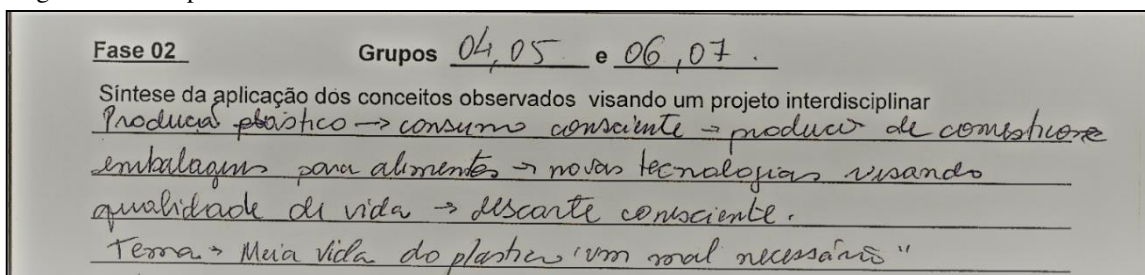 Fase 02 Grupos 04, 05 e 06, 07.
Síntese da aplicação dos conceitos observados visando um projeto interdisciplinar
Produção plástico → consumo consciente → produção de cosméticos e
embalagens para alimentos → novas tecnologias visando
qualidade de vida → descarte consciente.
Tema → Meia vida do plástico "um mal necessário"